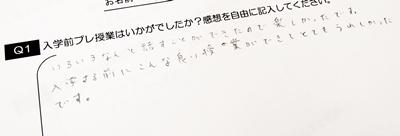 お名前
Q1 入学前プレ授業はいかがでしたか?感想を自由に記入してください。
いろいろなんと話すことができたので楽しかったです。
入学する前にこんな良い授業ができてとてもうれしかった
です。